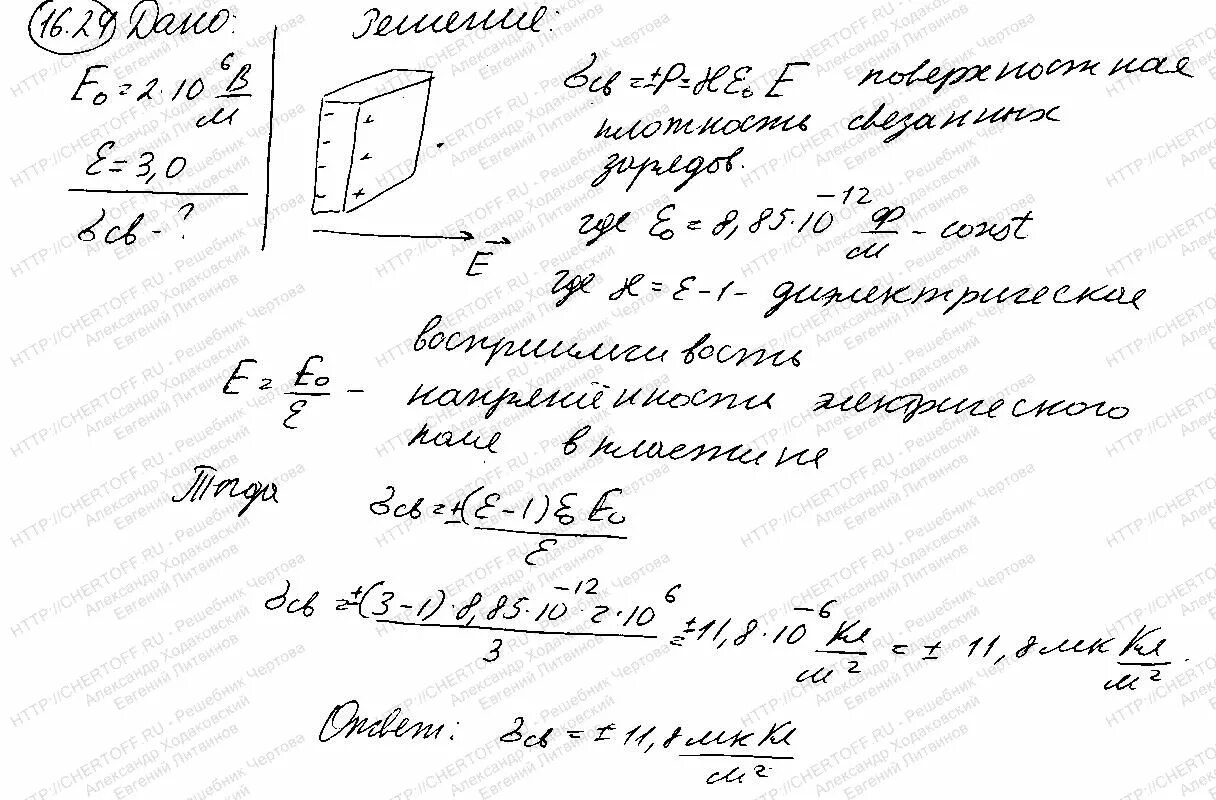 16.24 Дано: Решение:
E₀ = 2·10⁶ В/м
ε = 3,0
σсв - ?
- - - - + + +
E⃗
σсв = ±P = ϰε₀E поверхностная
плотность свезанных
зарядов.
где ε₀ = 8,85·10⁻¹² Ф/м - const
где ϰ = ε-1 - диэлектрическая
восприимчивость
E = E₀/ε - напряжённости электрического
поля в пластине
Тогда σсв = ±(ε-1)ε₀E₀/ε
σсв = ±(3-1)·8,85·10⁻¹²·2·10⁶/3 = ±11,8·10⁻⁶ Кл/м² = ± 11,8 мк Кл/м².
Ответ: σсв = ± 11,8 мк Кл/м²
HTTP://CHERTOFF.RU - Решебник Чертова
Александр Ходаковский
Евгений Литвинов